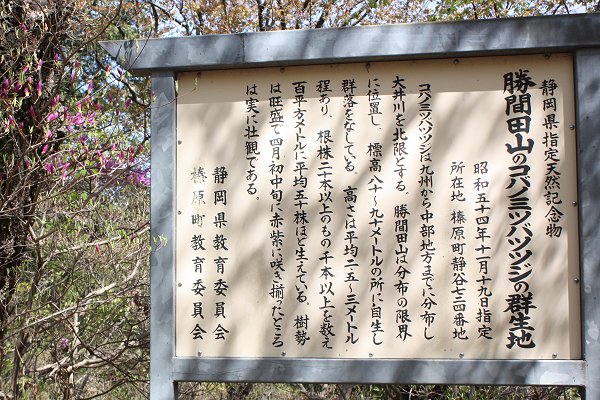 静岡県指定天然記念物
勝間田山のコバノミツバツツジの群生地
昭和五十四年十一月十九日指定
所在地 榛原町静谷二二四番地
コバノミツバツツジは九州から中部地方までに分布し
大井川を北限とする。勝間田山は分布の限界
に位置し、標高八十〜九十メートルの所に自生し
群落をなしている。高さは平均二・五〜三メートル
程あり、根株二十本以上のもの千本以上を数え
百平方メートルに平均五十株ほど生えている。樹勢
は旺盛で四月初中旬に赤紫に咲き揃ったところ
は実に壮観である。
静岡県教育委員会
榛原町教育委員会